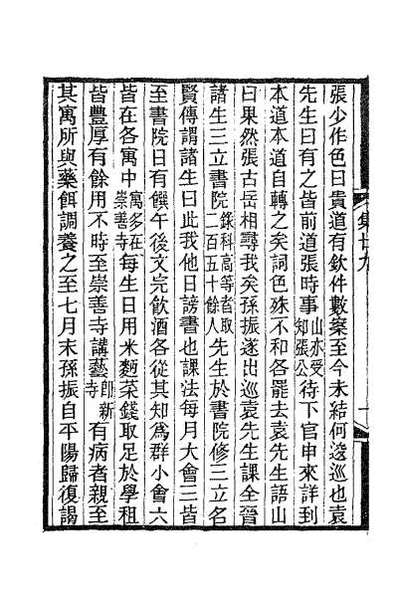 張少作色曰貴道有欽件數案至今未結何逡巡也袁
先生曰有之皆前道張時事山亦受知張公待下官申來詳到
本道本道自轉之矣詞色殊不和各罷去袁先生語山
曰果然張古岳相尋我矣孫振遂出巡袁先生課全晉
諸生三立書院錄科高等者取二百五十餘人先生於書院修三立名
賢傳謂諸生曰此我他日謗書也課法每月大會三皆
至書院日有饌午後文完飲酒各從其知為群小會六
皆在各寓中寓多在崇善寺每生日用米麪菜錢取足於學租
皆豐厚有餘用不時至崇善寺講藝卽新寺有病者親至
其寓所與藥餌調養之至七月末孫振自平陽歸復謁
集廿九